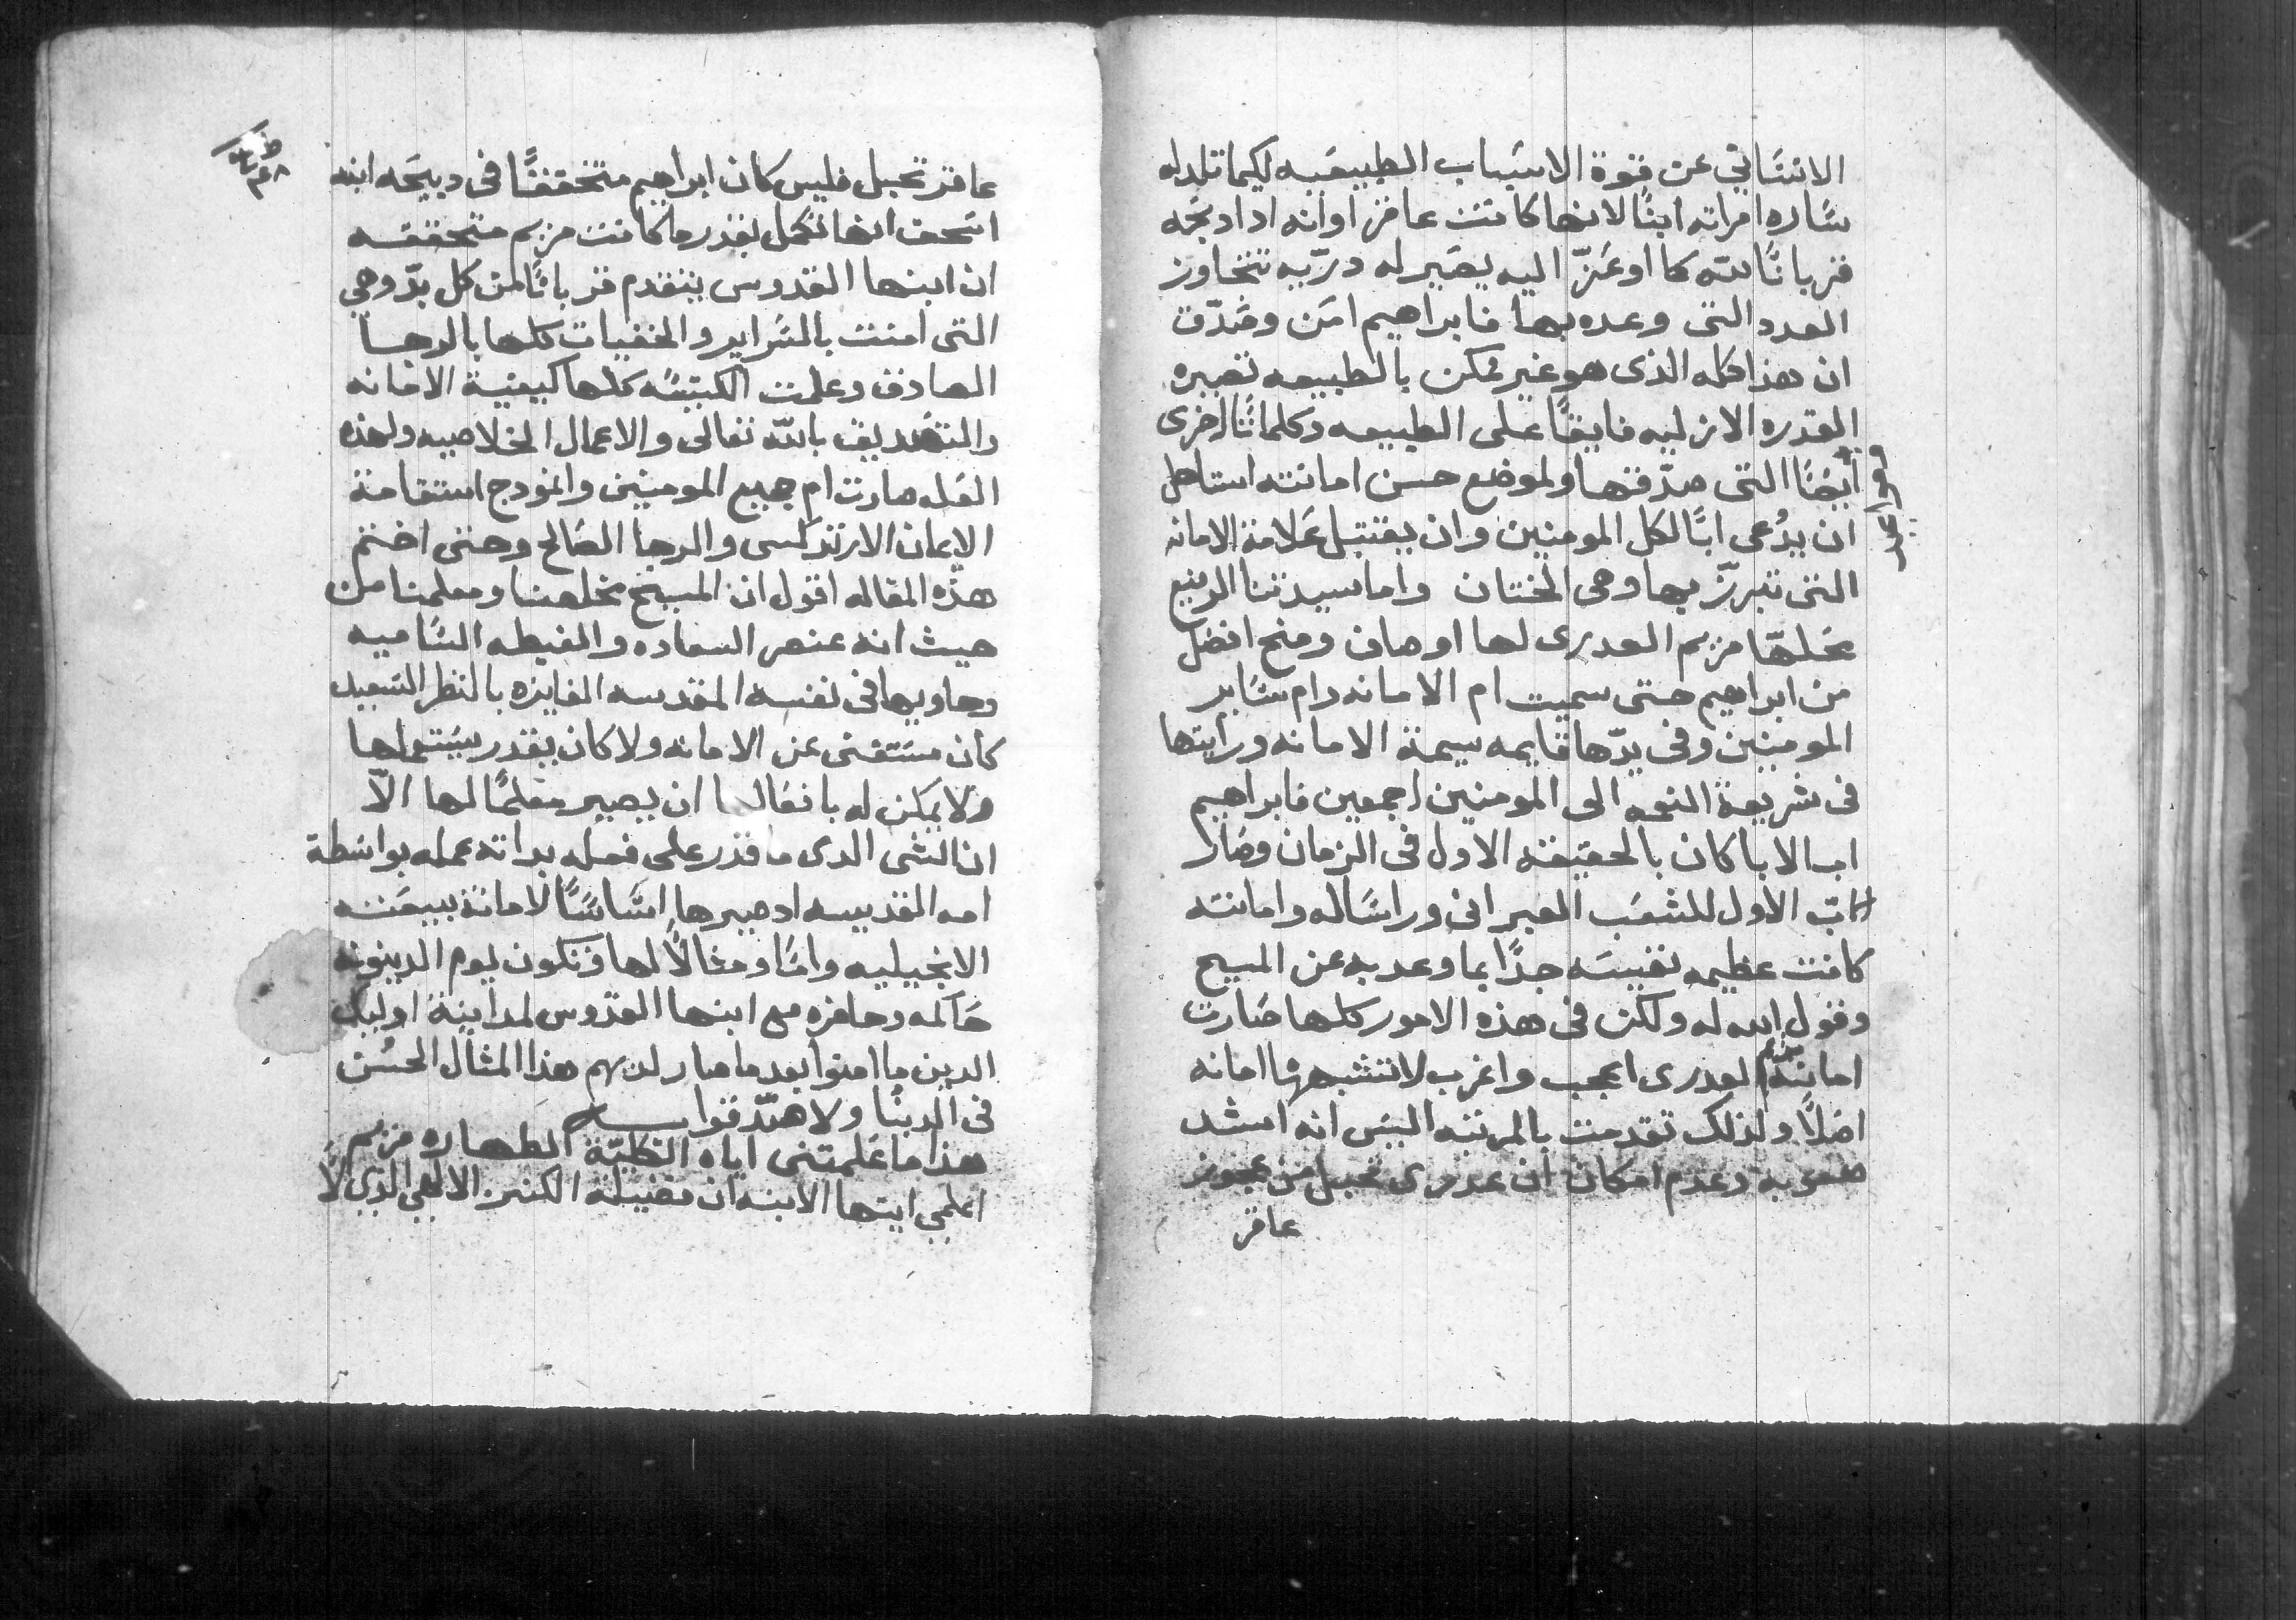 الانسَاني عن قوة الاسبَاب الطبيعَيه لكيما تلد له
سَاره امراته ابنًا لانها كانت عاقر او انه اذا دبحَه
قربانًا لله كما اوعَزّ اليه يصَير له درّيه تتجاوز
العدد التى وعده بها فابراهيم امَن وصَدّق
ان هذا كله الذى هو غير ممكن بالطبيعه تصيره
القدره الازليه فايقًا على الطبيعه وكلماتًا اخرى
مواعيد
ايضًا التى صدّقها ولموضع حسن امانته استاهل
ان يدُعى ابًا لكل المومنين وان يقتبل عَلامة الامانه
التى تبررّ بها وهى الختان واما سيدتنا الرفيع
محَلهّا مريم العدرى لها اوصاف ومنح افضل
من ابراهيم حتى سميت ام الامانه وام سَاير
المومنين وفى يدّها قايمه سيمة الامانه ورايتها
فى شريعة النعمه الى المومنين اجمعين فابراهيم
اب الابا كان بالحقيقه الاول فى الزمان وصَار
الابّ الاول للشعَب العبرانى وراسَاله وامانته
كانت عظيمه نفيسَه جدًا بما وعد به عن المسيح
وقول الله له ولكن فى هذه الامور كلها صَارت
امانة مريم العدرى اعجب واغرب لا تتشبه بها امانه
اصَلًا ولذلك تقدمت بالمرتبه اليسَ انه اشد
صعوبه وعدم امكان ان عدرى تحبل من عجوز
عاقر
عاقر تحبل فليس كان ابراهيم متحققًا فى دبيحَه ابنه
اسَحق انها تكمل بقدر ما كانت مريم متحققه
ان ابنها القدوس يتقدم قربانًا من كل بدّ وهي
التى امنت بالسَراير والخفيات كلها بالرجا
الصادق وعلمت الكنيسَه كلها كيفية الامانه
والتصَديق بالله تعالى والاعمال الخلاصيه ولهذه
العَله صارت ام جميع المومنين وانمودج استقامة
الايمان الارتدكسى والرجا الصَالح وحتى اختم
هذه المقاله اقول ان المسيح مخلصنا ومعلمنا من
حيث انه عنصر السعاده والغبطه السَاميه
وحاويها فى نفسه المقدسه الفايزه بالنظر السَعيد
كان مستَغنى عن الامانه ولا كان يقدر يسَتعملها
ولا يمكن له بافعَالها ان يصير معلمًا لها الاّ
ان الشى الدى ما قدر على فعله بداته عمله بواسَطة
امه القديسه اد صيرها اسَاسًَا لامانة بيعَته
الانجيليه وامًا ومثالًا لها وتكون ليوم الدينونه
حَاكمه وحاضره مع ابنها القدّوس لمداينة اوليك
الدين ما امنوا بعد ما صار لديهم هذا المثال الحسُن
فى الدينُا ولا صَدّقوا به
هذا ما عَلمتنى اياه الكليّة الطهاره مريم
اعلمي ايتها الابنه ان فضيلة الكنز الالهي الذي لاَ